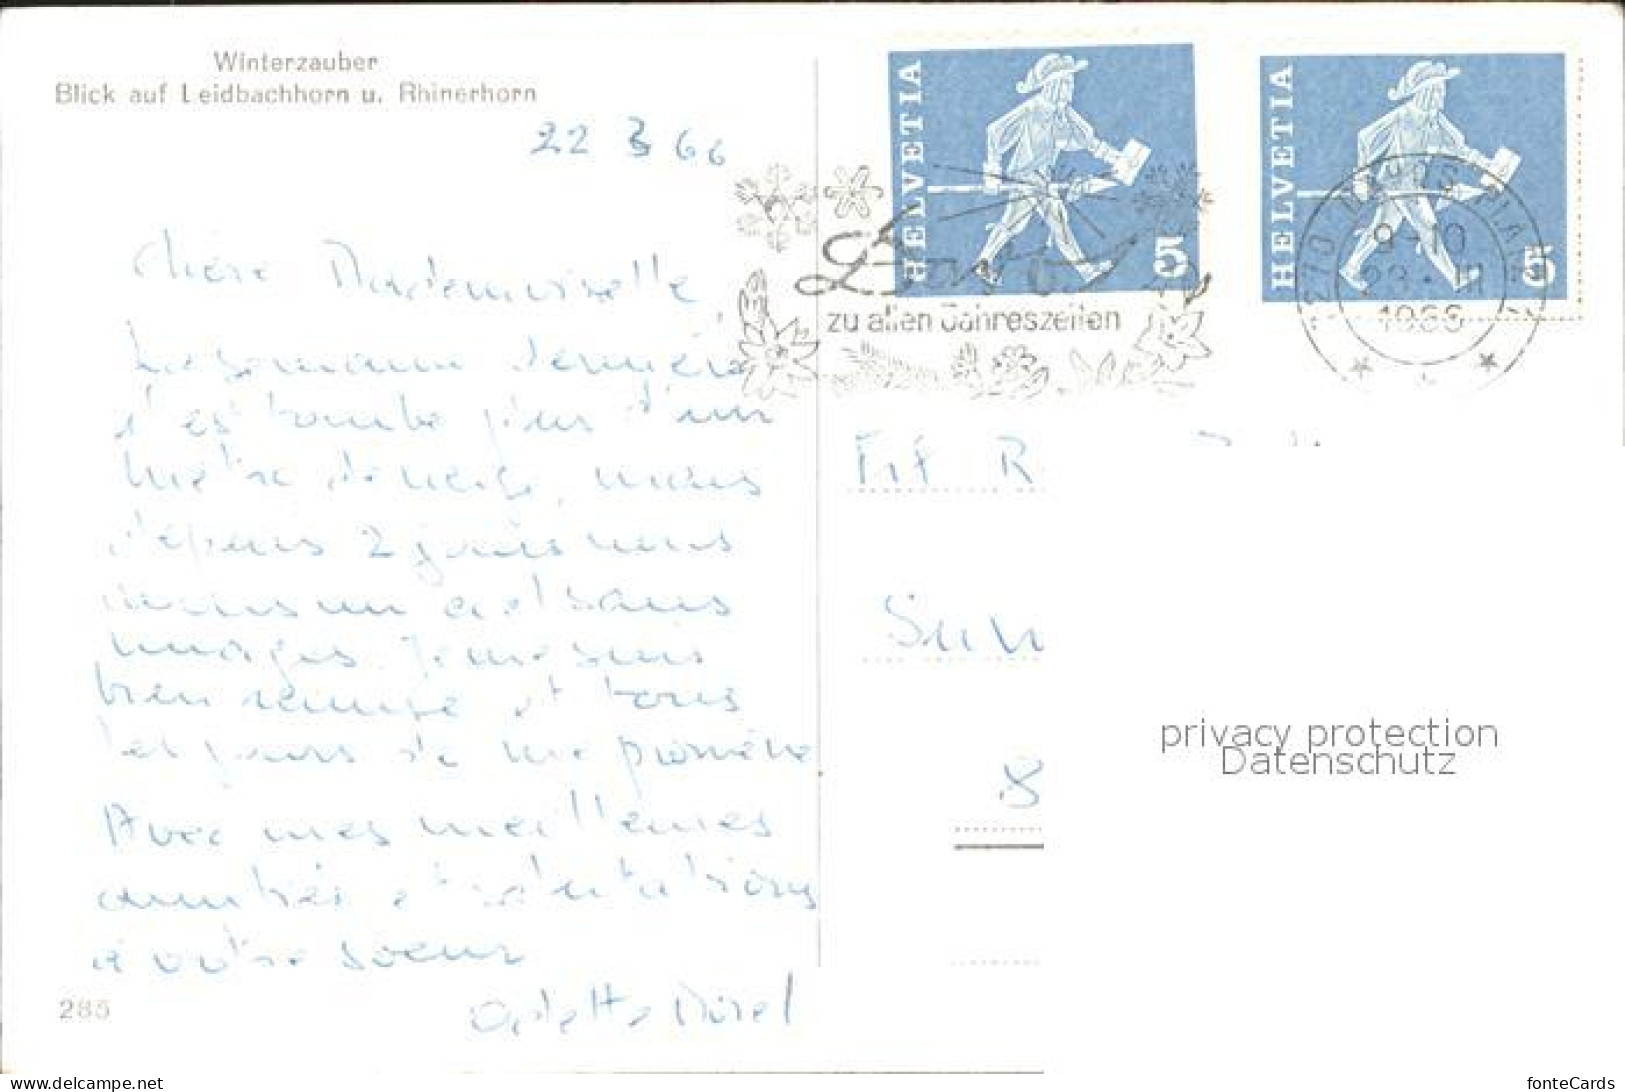 Winterzauber
Blick auf Leidbachhorn u. Rhinerhorn
22 3 66
HELVETIA
5
HELVETIA
5
Davos
zu allen Jahreszeiten
9-10
23. III
1966
Chère Mademoiselle,
La semaine dernière
il est tombé plus d'un
mètre de neige, mais
depuis 2 jours nous
avons un ciel sans
nuages. Je me suis
bien et tous
les jours je me promène
Avec mes meilleures
amitiés et salutations
à votre soeur
Odette
285
Frl R
8
privacy protection
Datenschutz
delcampe.net
fonteCards